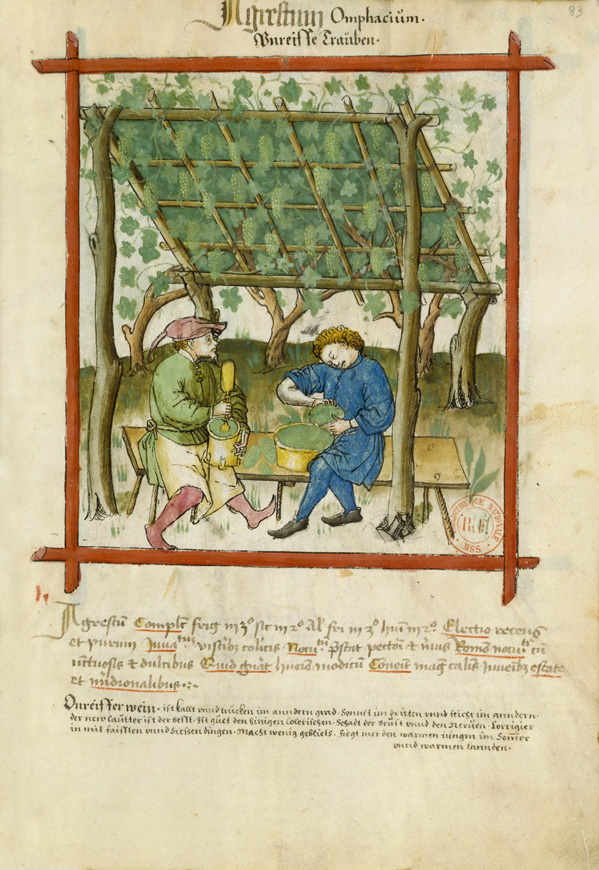 83
Agrestum Omphacium.
Vnreiffe Trauben.
Agrestū Complo frig in 3o sic in 2o Al' fri in 3o hūi in 2o Electio recens
et purum Iuua visībz colicis Nocu pstat pectori et neruis Remo nocu cū
unctuosis et dulcibus Quid gnāt humorē modicū Conueīt mag calis Iuueībz estate
et midionalibus
Vnreiffer wein. ist kallt vnnd trucken im anndern grad. Sonnst im dritten vnnd feicht im anndern.
der new Lautter ist der besst. Ist guet den hitzigen colerischen. Schadt der Brust vnnd den Neruen. Corrigier
in mit faissten vnnd Siessen dingen. Macht wenig geblüets. Fiegt mer den warmen iungen im Somer
vnnd warmen Lannden.